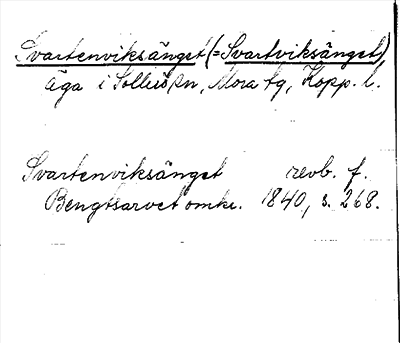 Svartenviksänget (= Svartviksänget),
äga i Sollerö sn, Mora tg, Kopp. l.
Svartenviksänget revb. f.
Bengtsarvet omkr. 1840, s. 268.